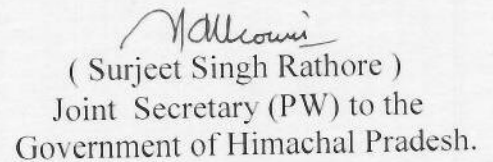 ( Surjeet Singh Rathore )
Joint Secretary (PW) to the
Government of Himachal Pradesh.